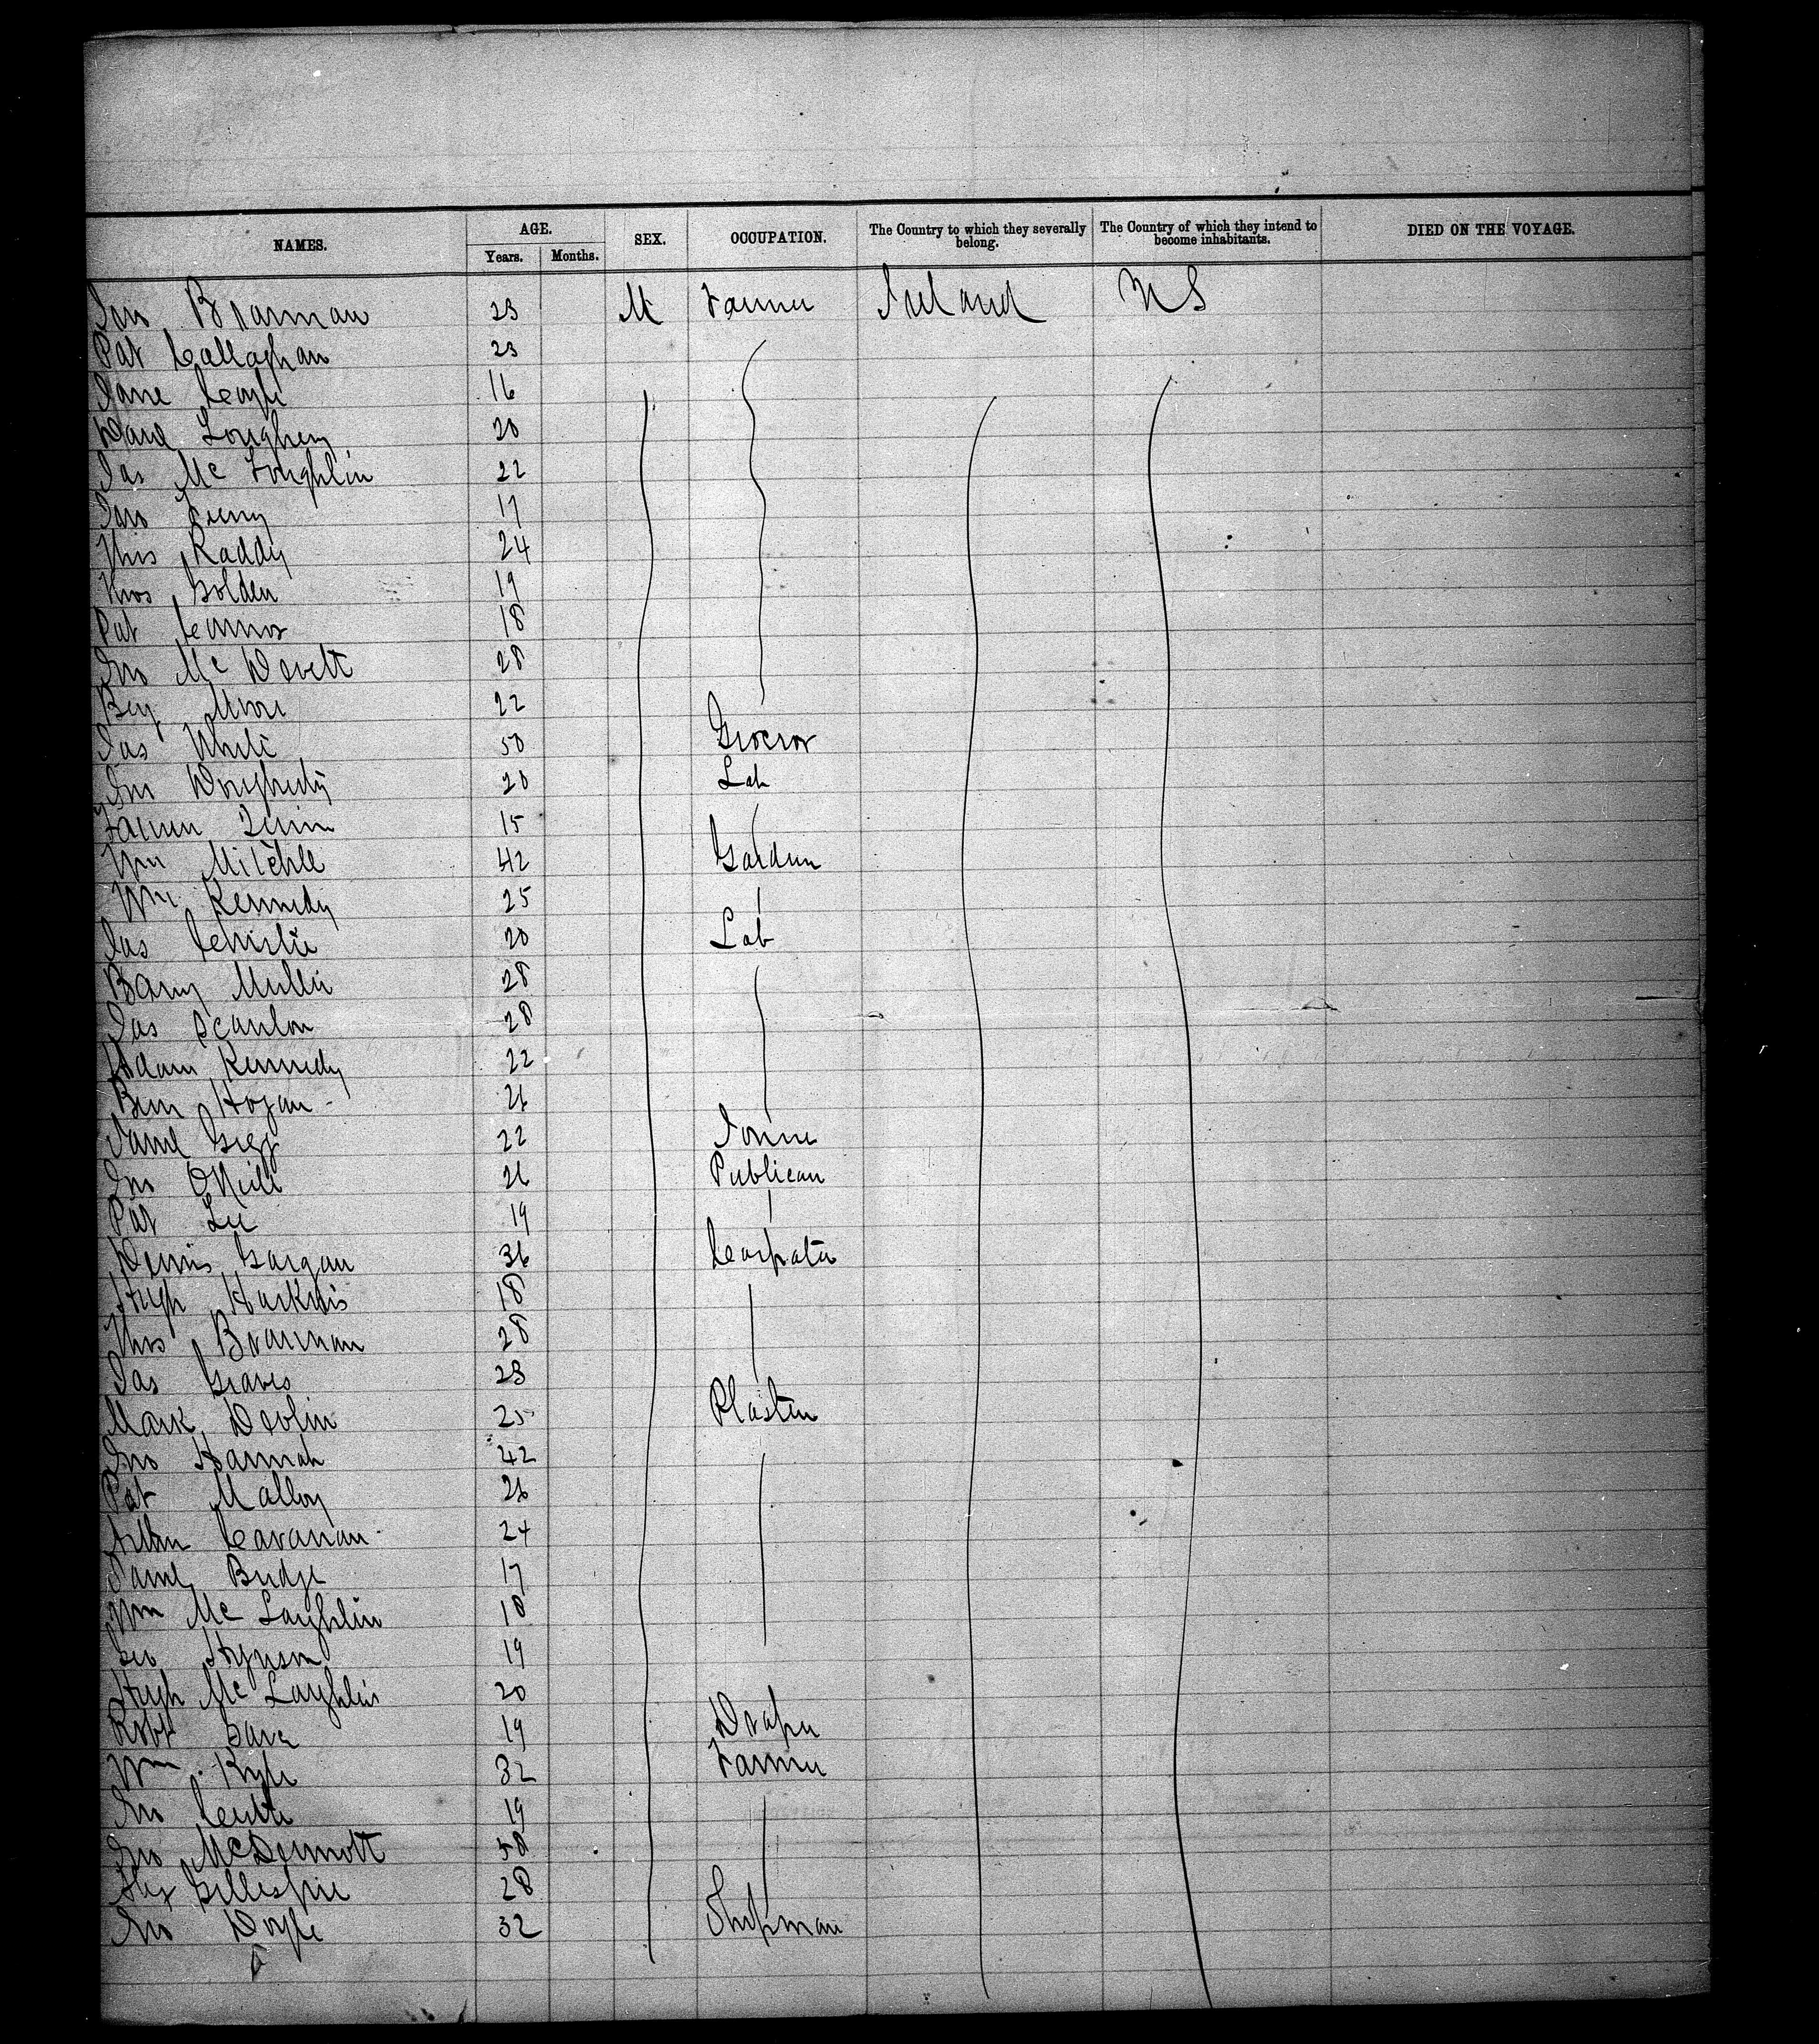 NAMES. AGE. SEX. OCCUPATION. The Country to which they severally belong. The Country of which they intend to become inhabitants. DIED ON THE VOYAGE.
Years. Months.
Jno Brannan 23 M Farmer Ireland U S
Pat Callaghan 23
16
Danl Loughery 20
Jas Mc Loughlin 22
17
Thos Raddy 24
Thos Golden 19
Pat Connor 18
Jno Mc Devett 28
Benj Moore 22
Jas White 50 Grocer
Jno Dougherty 20 Lab
Quinn 15
Wm Mitchell 42 Garden
Wm Kennedy 25
Jas Christie 20 Lab
Barny Mullin 28
Jas Scanlon 28
Adam Kennedy 22
Hogan 26
Saml Gregg 22
Jno O'Neill 26 Publican
Pat Lee 19
Dennis Gargan 36
Hugh Harkins 18
Thos Brannan 28
Jas Graves 23
Mark Devlin 25 Plaster
Jno Hannah 42
Pat Malloy 26
Cavanan 24
Saml Budge 17
Wm Mc Laughlin 18
Geo 19
Hugh Mc Laughlin 20
Robt 19 Draper
Wm Kyle 32 Farmer
Jno 19
Jno McDermott 50
Alex Gillespie 28
Jno Doyle 32 Shipman